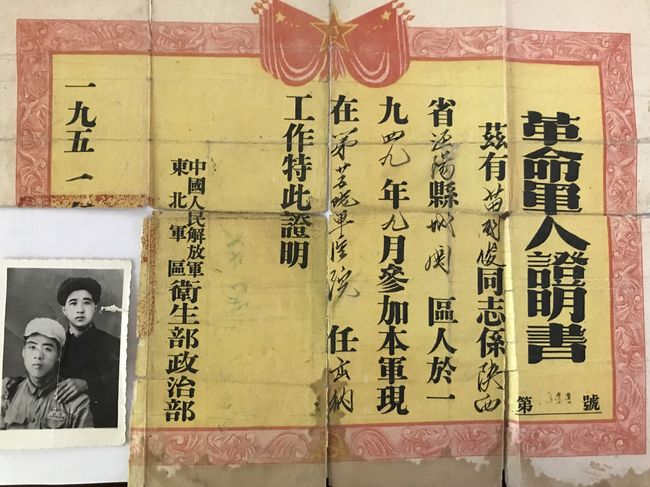 革命軍人證明書
第344號
茲有苗俊同志係陕西
省涇陽縣城関區人於一
九四九年九月參加本軍現
在第廿陸軍医院任出納
工作特此證明
中國人民解放軍
東北軍區
衛生部政治部
一九五一年